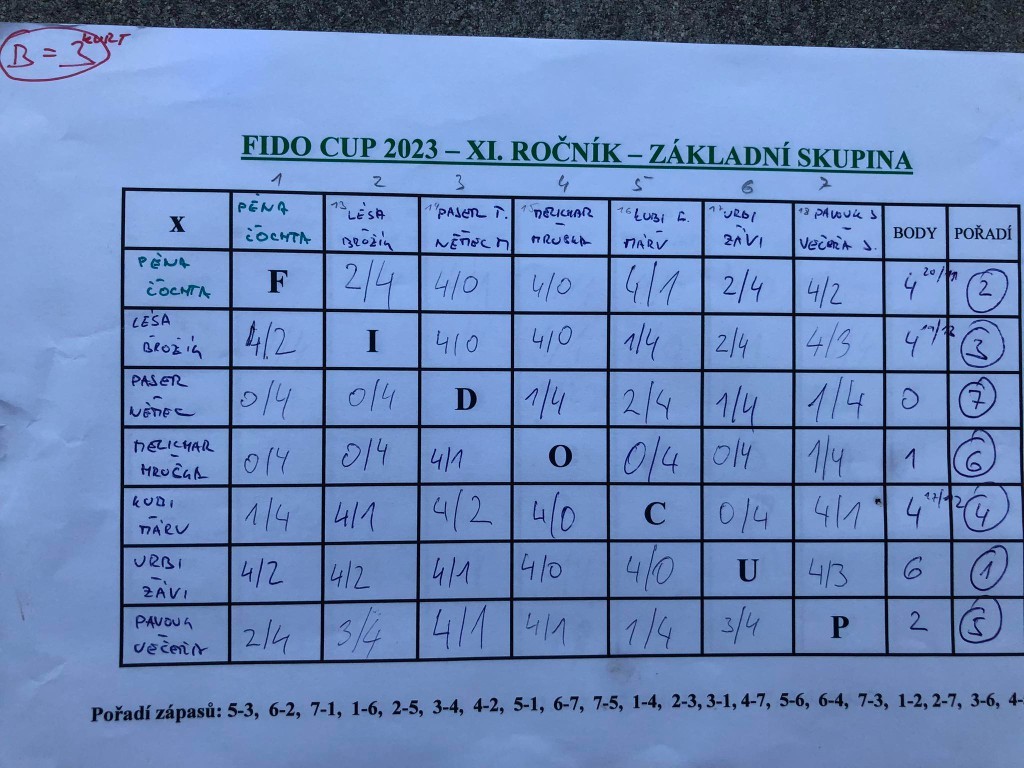 B = 3 KURT
FIDO CUP 2023 – XI. ROČNÍK – ZÁKLADNÍ SKUPINA
1 2 3 4 5 6 7
X PÉŇA – ČOCHTA 13 LÉSA – BROŽÍK 14 PASER T. – NĚMEC M 15 MELICHAR – HRUŠKA 16 KUBI G. – MÁRV 17 URBI – ZÁVI 18 PAVOUK J. – VEČEŘA J. BODY POŘADÍ
PÉŇA – ČOCHTA F 2/4 4/0 4/0 4/1 2/4 4/2 4 2
LÉSA – BROŽÍK 4/2 I 4/0 4/0 1/4 2/4 4/3 4 3
PASER – NĚMEC 0/4 0/4 D 1/4 2/4 1/4 1/4 0 7
MELICHAR – HRUŠKA 0/4 0/4 4/1 O 0/4 0/4 1/4 1 6
KUBI – MÁRV 1/4 4/1 4/2 4/0 C 0/4 4/1 4 17/12 4
URBI – ZÁVI 4/2 4/2 4/1 4/0 4/0 U 4/3 6 1
PAVOUK – VEČEŘA 2/4 3/4 4/1 4/1 1/4 3/4 P 2 5
Pořadí zápasů: 5-3, 6-2, 7-1, 1-6, 2-5, 3-4, 4-2, 5-1, 6-7, 7-5, 1-4, 2-3, 3-1, 4-7, 5-6, 6-4, 7-3, 1-2, 2-7, 3-6, 4-